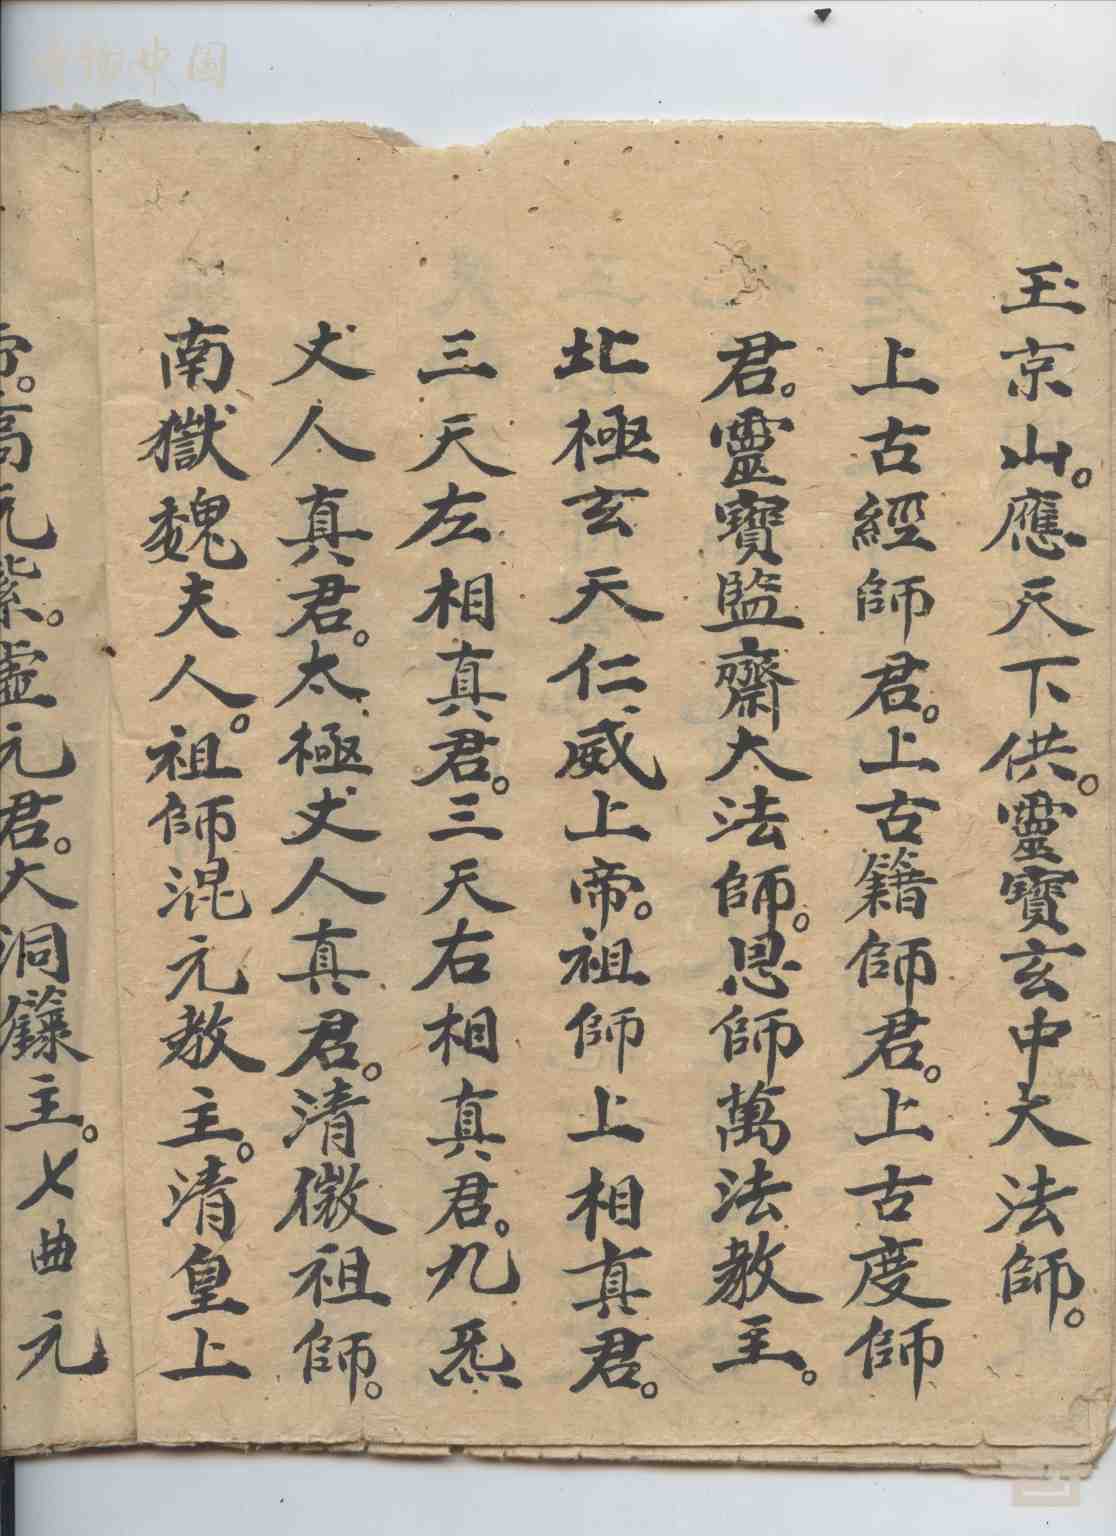 玉京山。應天下供。靈寶玄中大法師。
上古經師君。上古籍師君。上古度師
君。靈寶監齋大法師。恩師萬法教主。
北極玄天仁威上帝。祖師上相真君。
三天左相真君。三天右相真君。九炁
丈人真君。太極丈人真君。清微祖師。
南嶽魏夫人。祖師混元教主。清皇上
帝。高元紫。虛元君。大洞籙主。七曲元
中国